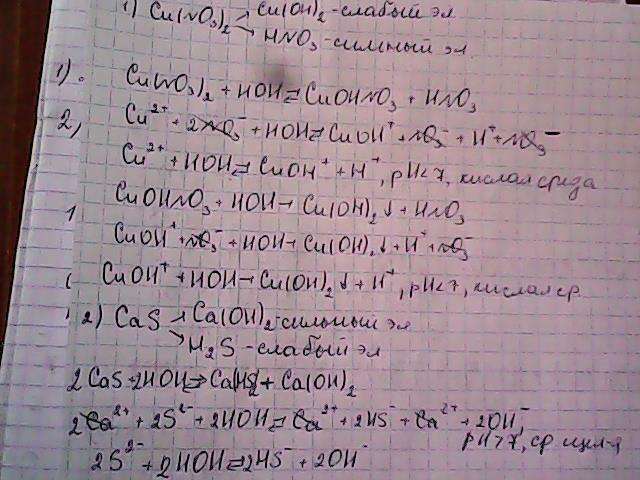 1) Cu(NO₃)₂ → Cu(OH)₂ - слабый эл
→ HNO₃ - сильный эл.
1). Cu(NO₃)₂ + HOH ⇄ CuOHNO₃ + HNO₃
2, Cu²⁺ + 2NO₃⁻ + HOH ⇄ CuOH⁺ + NO₃⁻ + H⁺ + NO₃⁻
Cu²⁺ + HOH ⇄ CuOH⁺ + H⁺, pH<7, кислая среда
CuOHNO₃ + HOH → Cu(OH)₂↓ + HNO₃
CuOH⁺ + NO₃⁻ + HOH → Cu(OH)₂↓ + H⁺ + NO₃⁻
CuOH⁺ + HOH → Cu(OH)₂↓ + H⁺, pH<7, кислая ср
2) CaS → Ca(OH)₂ - сильный эл
→ H₂S - слабый эл
2CaS + 2HOH ⇄ Ca(HS)₂ + Ca(OH)₂
2Ca²⁺ + 2S²⁻ + 2HOH ⇄ Ca²⁺ + 2HS⁻ + Ca²⁺ + 2OH⁻,
pH>7, ср щел-я
2S²⁻ + 2HOH ⇄ 2HS⁻ + 2OH⁻